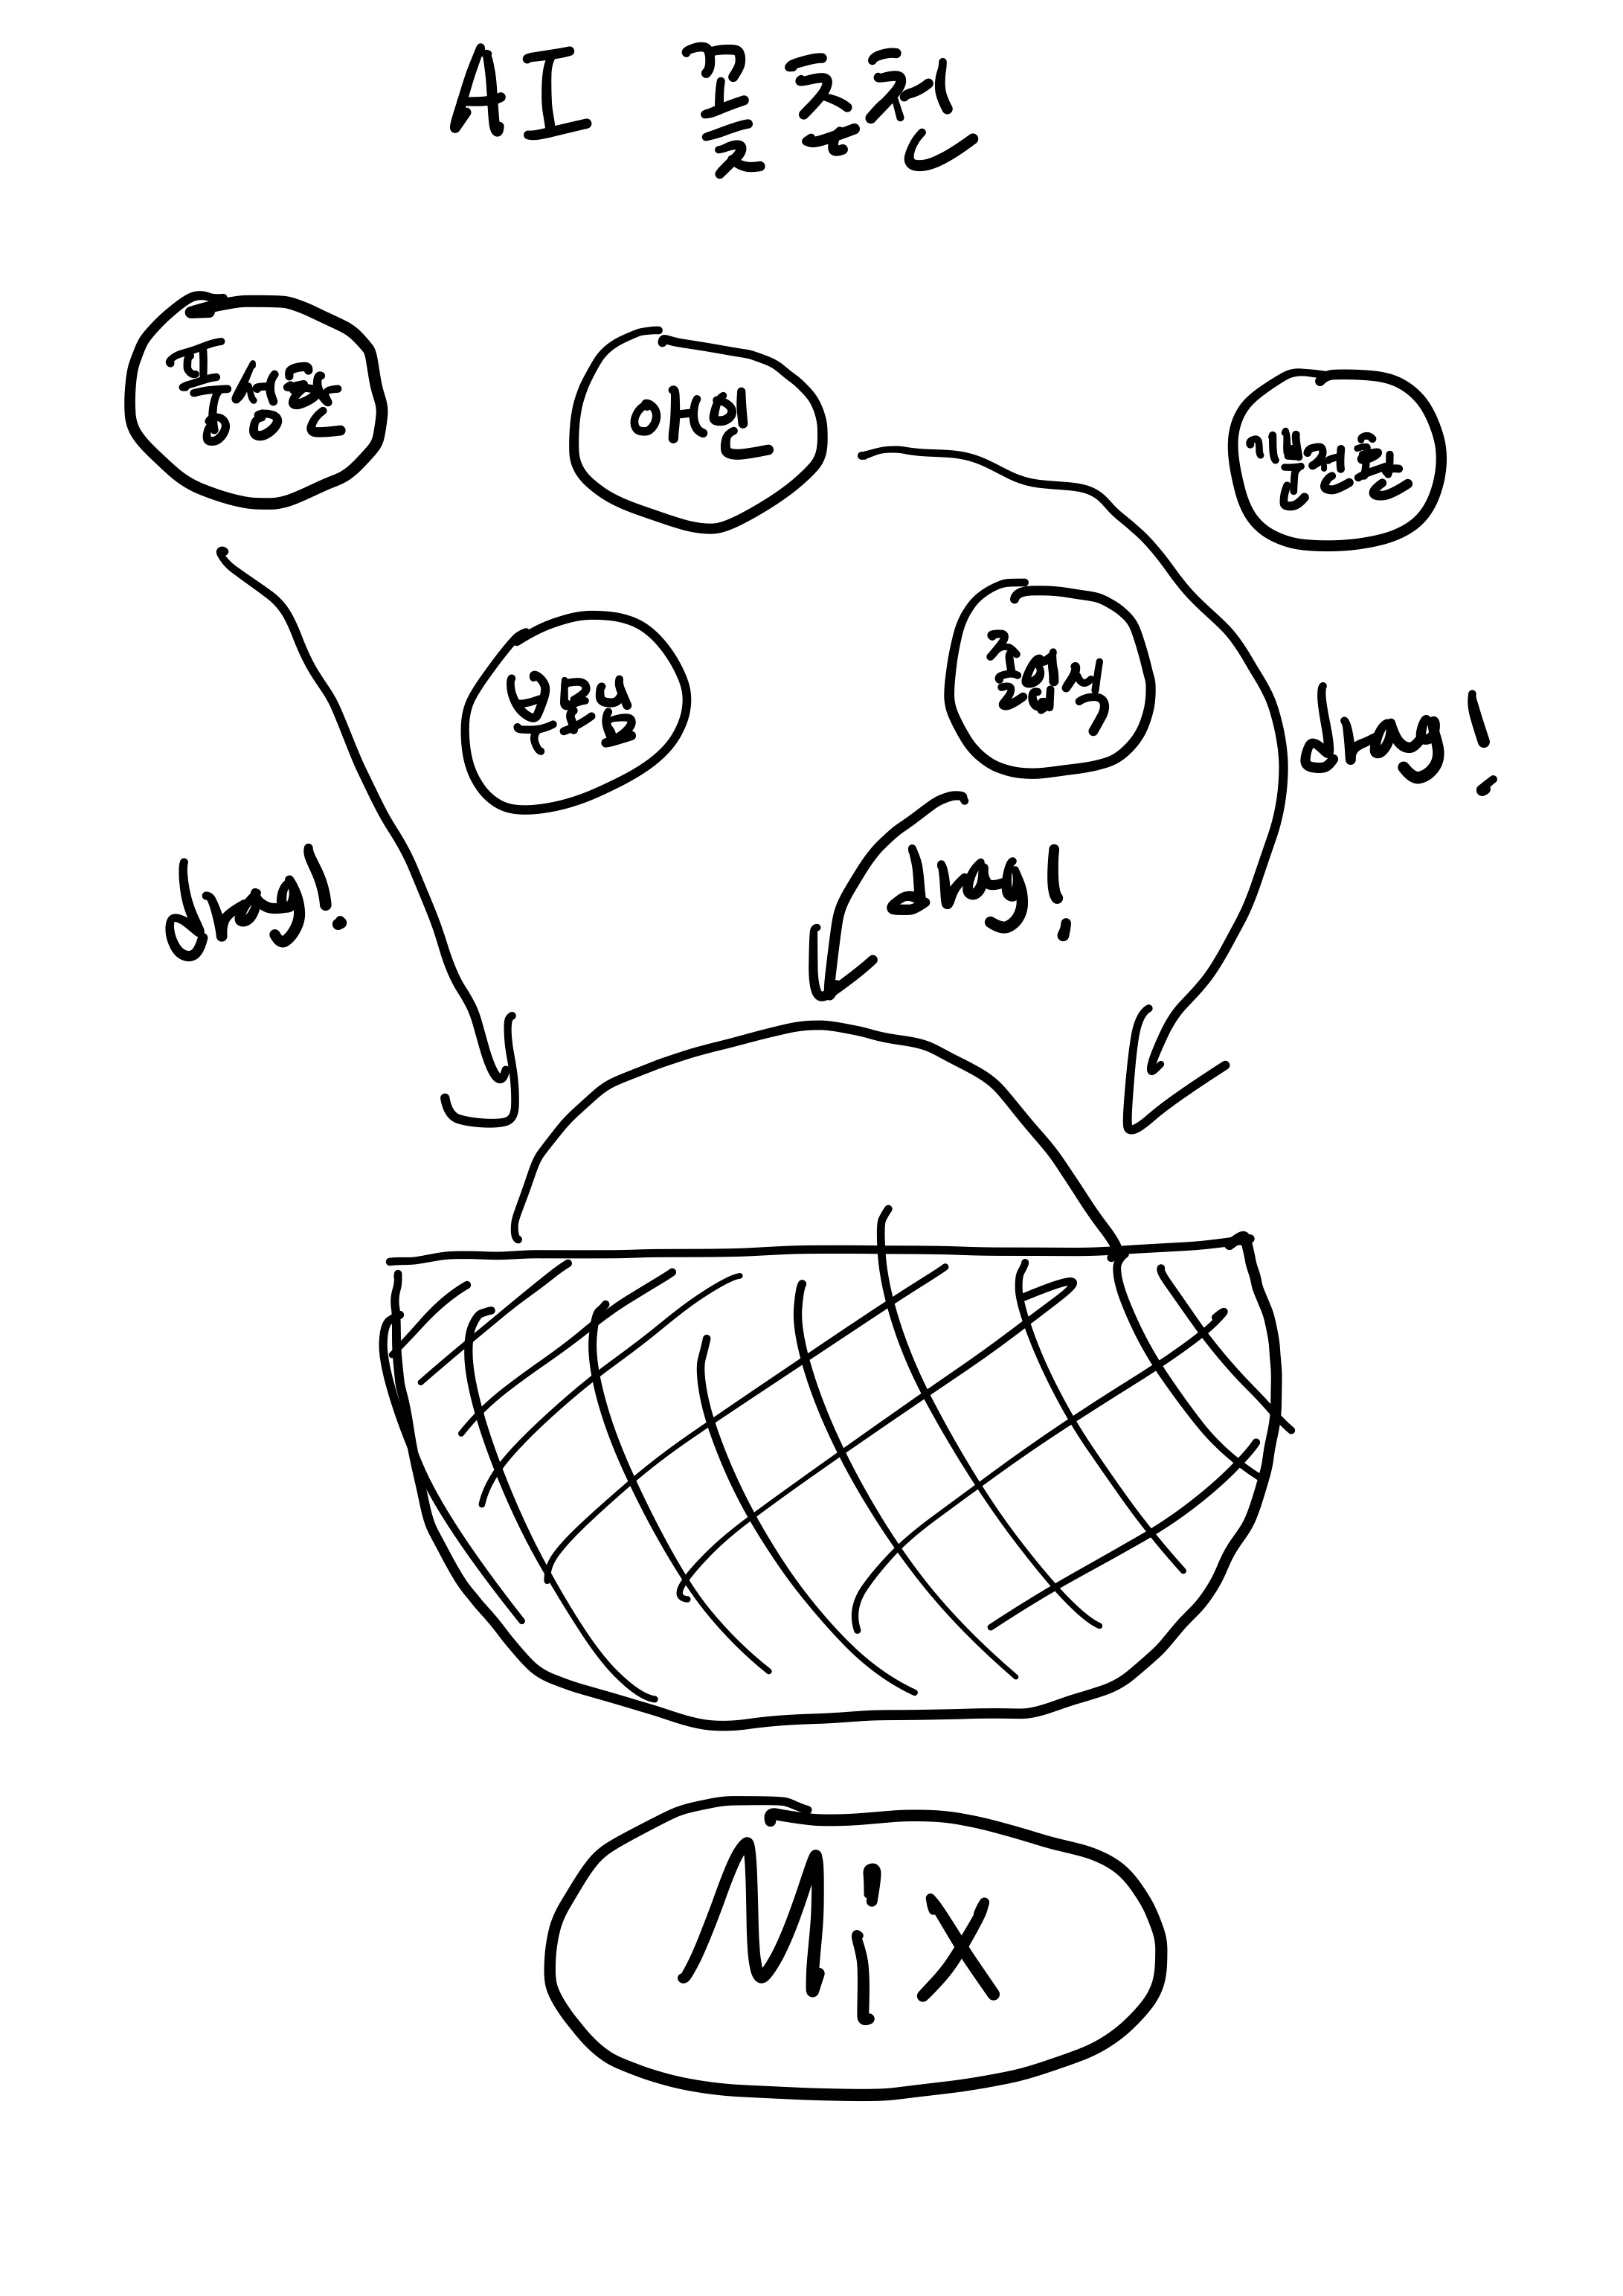 AI 꽃 추천
풍성한
애인
기분전환
졸업식
drag!
drag!
drag!
Mix